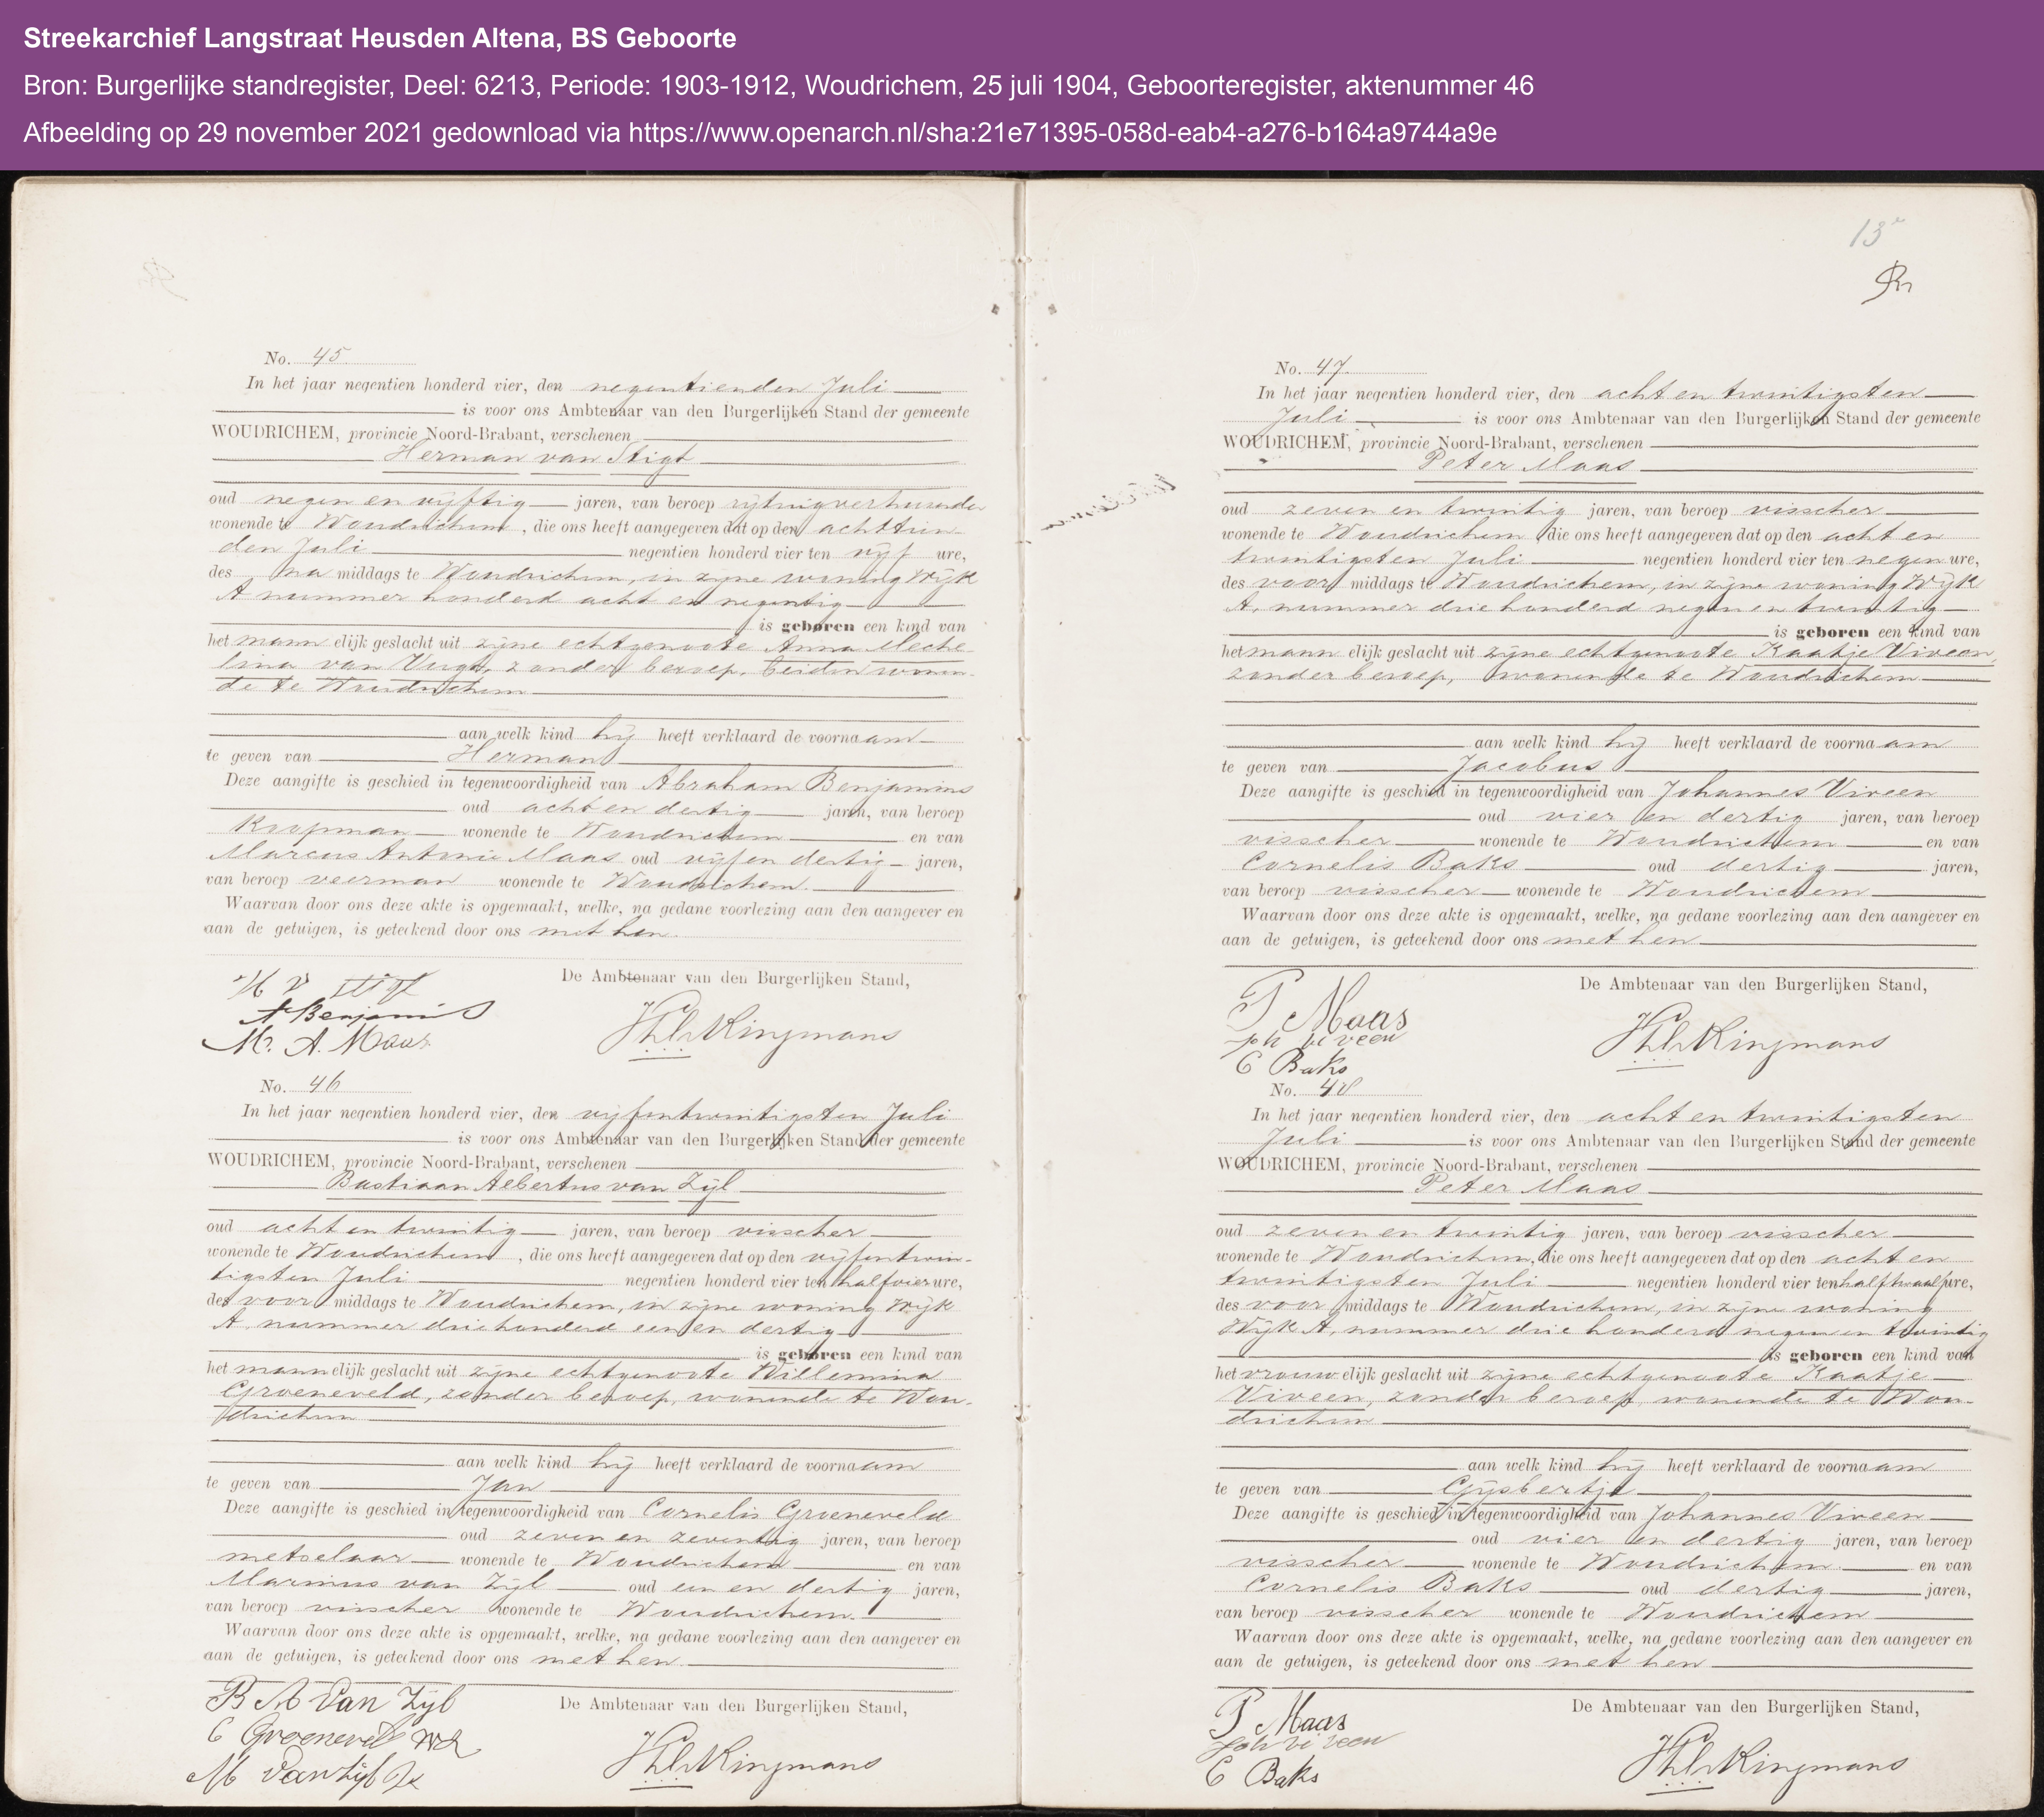 Streekarchief Langstraat Heusden Altena, BS Geboorte
Bron: Burgerlijke standregister, Deel: 6213, Periode: 1903-1912, Woudrichem, 25 juli 1904, Geboorteregister, aktenummer 46
Afbeelding op 29 november 2021 gedownload via https://www.openarch.nl/sha:21e71395-058d-eab4-a276-b164a9744a9e
No. 45
In het jaar negentien honderd vier, den negentienden Juli
is voor ons Ambtenaar van den Burgerlijken Stand der gemeente
WOUDRICHEM, provincie Noord-Brabant, verschenen
Herman van Stigt
oud negen en vijftig jaren, van beroep rijtuigverhuurder
wonende te Woudrichem, die ons heeft aangegeven dat op den achttien-
den Juli negentien honderd vier ten vijf ure,
des na middags te Woudrichem, in zijne woning Wijk
A nummer honderd acht en negentig
is geboren een kind van
het mann elijk geslacht uit zijne echtgenoote Anna Meche-
lina van Vugt, zonder beroep, beiden wonen-
de te Woudrichem
aan welk kind hij heeft verklaard de voornaam
te geven van Herman
Deze aangifte is geschied in tegenwoordigheid van Abraham Benjamins
oud acht en dertig jaren, van beroep
Koopman wonende te Woudrichem en van
Marcus Antonie Maas oud vijf en dertig jaren,
van beroep veerman wonende te Woudrichem.
Waarvan door ons deze akte is opgemaakt, welke, na gedane voorlezing aan den aangever en
aan de getuigen, is geteekend door ons met hen.
De Ambtenaar van den Burgerlijken Stand,
H v Stigt
A Benjamins
M. A. Maas
No. 46
In het jaar negentien honderd vier, den vijfentwintigsten Juli
is voor ons Ambtenaar van den Burgerlijken Stand der gemeente
WOUDRICHEM, provincie Noord-Brabant, verschenen
Bastiaan Aelbertus van Zijl
oud acht en twintig jaren, van beroep visscher
wonende te Woudrichem, die ons heeft aangegeven dat op den vijfentwin-
tigsten Juli negentien honderd vier ten halfvier ure,
des voor middags te Woudrichem, in zijne woning Wijk
A, nummer driehonderd een en dertig
is geboren een kind van
het mannelijk geslacht uit zijne echtgenoote Willemina
Groeneveld, zonder beroep, wonende te Wou-
drichem
aan welk kind hij heeft verklaard de voornaam
te geven van Jan
Deze aangifte is geschied in tegenwoordigheid van Cornelis Groeneveld
oud zeven en zeventig jaren, van beroep
metselaar wonende te Woudrichem en van
Marinus van Zijl oud een en dertig jaren,
van beroep visscher wonende te Woudrichem.
Waarvan door ons deze akte is opgemaakt, welke, na gedane voorlezing aan den aangever en
aan de getuigen, is geteekend door ons met hen.
De Ambtenaar van den Burgerlijken Stand,
B A Van Zijl
C Groeneveld
M Van Zijl
13
No. 47.
In het jaar negentien honderd vier, den acht en twintigsten
Juli is voor ons Ambtenaar van den Burgerlijken Stand der gemeente
WOUDRICHEM, provincie Noord-Brabant, verschenen
Peter Maas
oud zeven en twintig jaren, van beroep visscher
wonende te Woudrichem die ons heeft aangegeven dat op den acht en
twintigsten Juli negentien honderd vier ten negen ure,
des voor middags te Woudrichem, in zijne woning Wijk
A, nummer driehonderd negen en twintig
is geboren een kind van
het mann elijk geslacht uit zijne echtgenoote Kaatje Viveen,
zonder beroep, wonende te Woudrichem
aan welk kind hij heeft verklaard de voornaam
te geven van Jacobus
Deze aangifte is geschied in tegenwoordigheid van Johannes Viveen
oud vier en dertig jaren, van beroep
visscher wonende te Woudrichem en van
Cornelis Baks oud dertig jaren,
van beroep visscher wonende te Woudrichem
Waarvan door ons deze akte is opgemaakt, welke, na gedane voorlezing aan den aangever en
aan de getuigen, is geteekend door ons met hen
De Ambtenaar van den Burgerlijken Stand,
P Maas
Joh viveen
C Baks
No. 48
In het jaar negentien honderd vier, den acht en twintigsten
Juli is voor ons Ambtenaar van den Burgerlijken Stand der gemeente
WOUDRICHEM, provincie Noord-Brabant, verschenen
Peter Maas
oud zeven en twintig jaren, van beroep visscher
wonende te Woudrichem, die ons heeft aangegeven dat op den acht en
twintigsten Juli negentien honderd vier ten halftwaalf ure,
des voor middags te Woudrichem, in zijne woning
Wijk A, nummer driehonderd negen en twintig
is geboren een kind van
het vrouw elijk geslacht uit zijne echtgenoote Kaatje
Viveen, zonder beroep, wonende te Wou-
drichem
aan welk kind hij heeft verklaard de voornaam
te geven van Gijsbertje
Deze aangifte is geschied in tegenwoordigheid van Johannes Viveen
oud vier en dertig jaren, van beroep
visscher wonende te Woudrichem en van
Cornelis Baks oud dertig jaren,
van beroep visscher wonende te Woudrichem
Waarvan door ons deze akte is opgemaakt, welke, na gedane voorlezing aan den aangever en
aan de getuigen, is geteekend door ons met hen
De Ambtenaar van den Burgerlijken Stand,
P Maas
Joh vi veen
C Baks